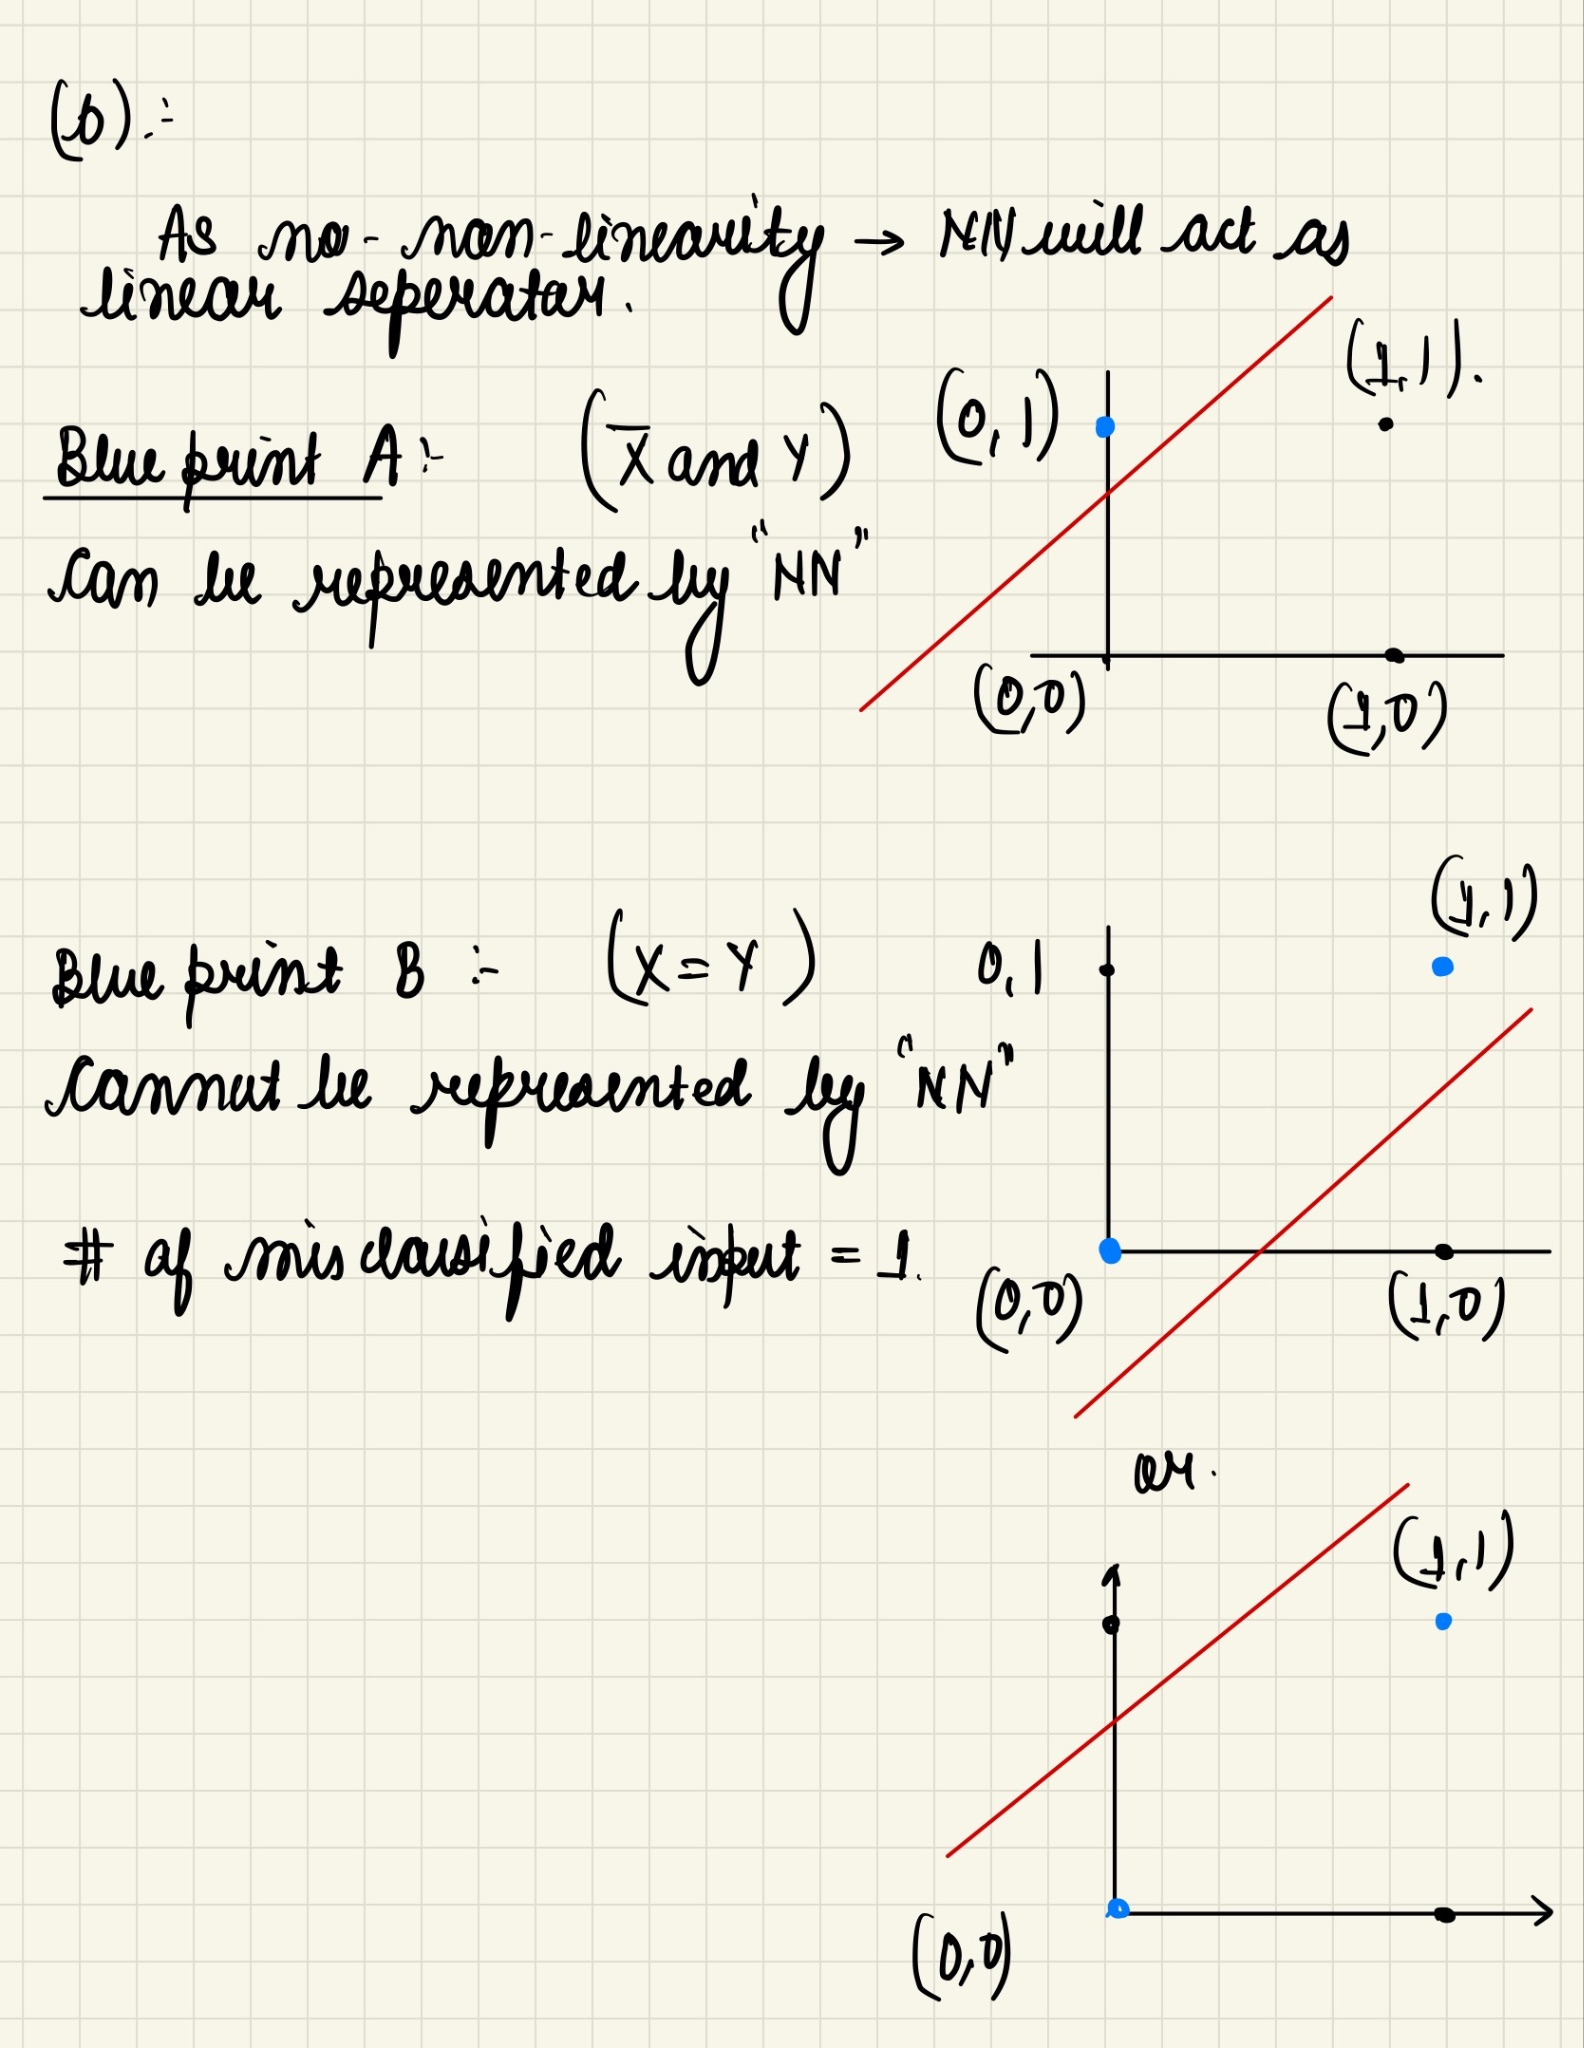 (b) :-
As no-non-linearity → NN will act as
linear seperator.
(1,1).
(0,1)
Blue print A :- (X̅ and Y)
Can be represented by "NN"
(0,0)
(1,0)
(1,1)
Blue print B :- (X = Y)
0,1
Cannot be represented by "NN"
# of misclassified input = 1.
(0,0)
(1,0)
or.
(1,1)
(0,0)